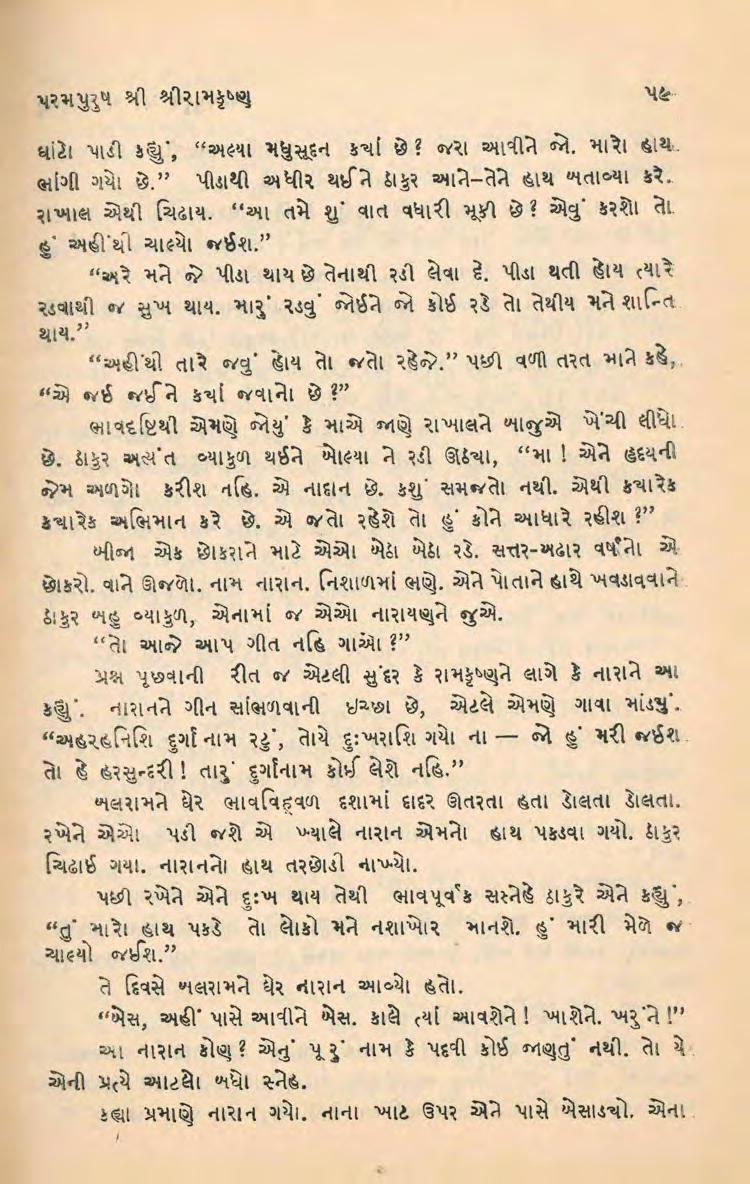 પરમપુરુષ શ્રી શ્રીરામકૃષ્ણ ૫૯
ઘાંટો પાડી કહ્યું, “અલ્યા મધુસૂદન ક્યાં છે? જરા આવીને જો. મારો હાથ
ભાંગી ગયો છે.” પીડાથી અધીર થઈને ઠાકુર આને–તેને હાથ બતાવ્યા કરે.
રાખાલ એથી ચિઢાય. “આ તમે શું વાત વધારી મૂકી છે? એવું કરશો તો
હું અહીંથી ચાલ્યો જઈશ.”
“અરે મને જે પીડા થાય છે તેનાથી રડી લેવા દે. પીડા થતી હોય ત્યારે
રડવાથી જ સુખ થાય. મારું રડવું જોઈને જો કોઈ રડે તો તેથીય મને શાન્તિ
થાય.”
“અહીંથી તારે જવું હોય તો જતો રહેજે.” પછી વળી તરત માને કહે,
“એ જઈ જઈને ક્યાં જવાનો છે?”
ભાવદૃષ્ટિથી એમણે જોયું કે માએ જાણે રાખાલને બાજુએ ખેંચી લીધો
છે. ઠાકુર અત્યંત વ્યાકુળ થઈને બોલ્યા ને રડી ઊઠ્યા, “મા! એને હૃદયની
જેમ અળગો કરીશ નહિ. એ નાદાન છે. કશું સમજતો નથી. એથી ક્યારેક
ક્યારેક અભિમાન કરે છે. એ જતો રહેશે તો હું કોને આધારે રહીશ?”
બીજા એક છોકરાને માટે એઓ બેઠા બેઠા રડે. સત્તર-અઢાર વર્ષનો એ
છોકરો. વાને ઊજળો. નામ નારાન. નિશાળમાં ભણે. એને પોતાને હાથે ખવડાવવાને
ઠાકુર બહુ વ્યાકુળ, એનામાં જ એઓ નારાયણને જુએ.
“તો આજે આપ ગીત નહિ ગાઓ?”
પ્રશ્ન પૂછવાની રીત જ એટલી સુંદર કે રામકૃષ્ણને લાગે કે નારાને આ
કહ્યું. નારાનને ગીત સાંભળવાની ઇચ્છા છે, એટલે એમણે ગાવા માંડ્યું.
“અહરહનિશિ દુર્ગાનામ રટું, તોયે દુઃખરાશિ ગયો ના — જો હું મરી જઈશ
તો હે હરસુન્દરી! તારું દુર્ગાનામ કોઈ લેશે નહિ.”
બલરામને ઘેર ભાવવિહ્વળ દશામાં દાદર ઊતરતા હતા ડોલતા ડોલતા.
રખેને એઓ પડી જશે એ ખ્યાલે નારાન એમનો હાથ પકડવા ગયો. ઠાકુર
ચિઢાઈ ગયા. નારાનનો હાથ તરછોડી નાખ્યો.
પછી રખેને એને દુઃખ થાય તેથી ભાવપૂર્વક સસ્નેહે ઠાકુરે એને કહ્યું,
“તું મારો હાથ પકડે તો લોકો મને નશાખોર માનશે. હું મારી મેળે જ
ચાલ્યો જઈશ.”
તે દિવસે બલરામને ઘેર નારાન આવ્યો હતો.
“બેસ, અહીં પાસે આવીને બેસ. કાલે ત્યાં આવશેને! ખાશેને. ખરુંને!”
આ નારાન કોણ? એનું પૂરું નામ કે પદવી કોઈ જાણતું નથી. તો યે
એની પ્રત્યે આટલો બધો સ્નેહ.
કહ્યા પ્રમાણે નારાન ગયો. નાના ખાટ ઉપર એને પાસે બેસાડ્યો. એના